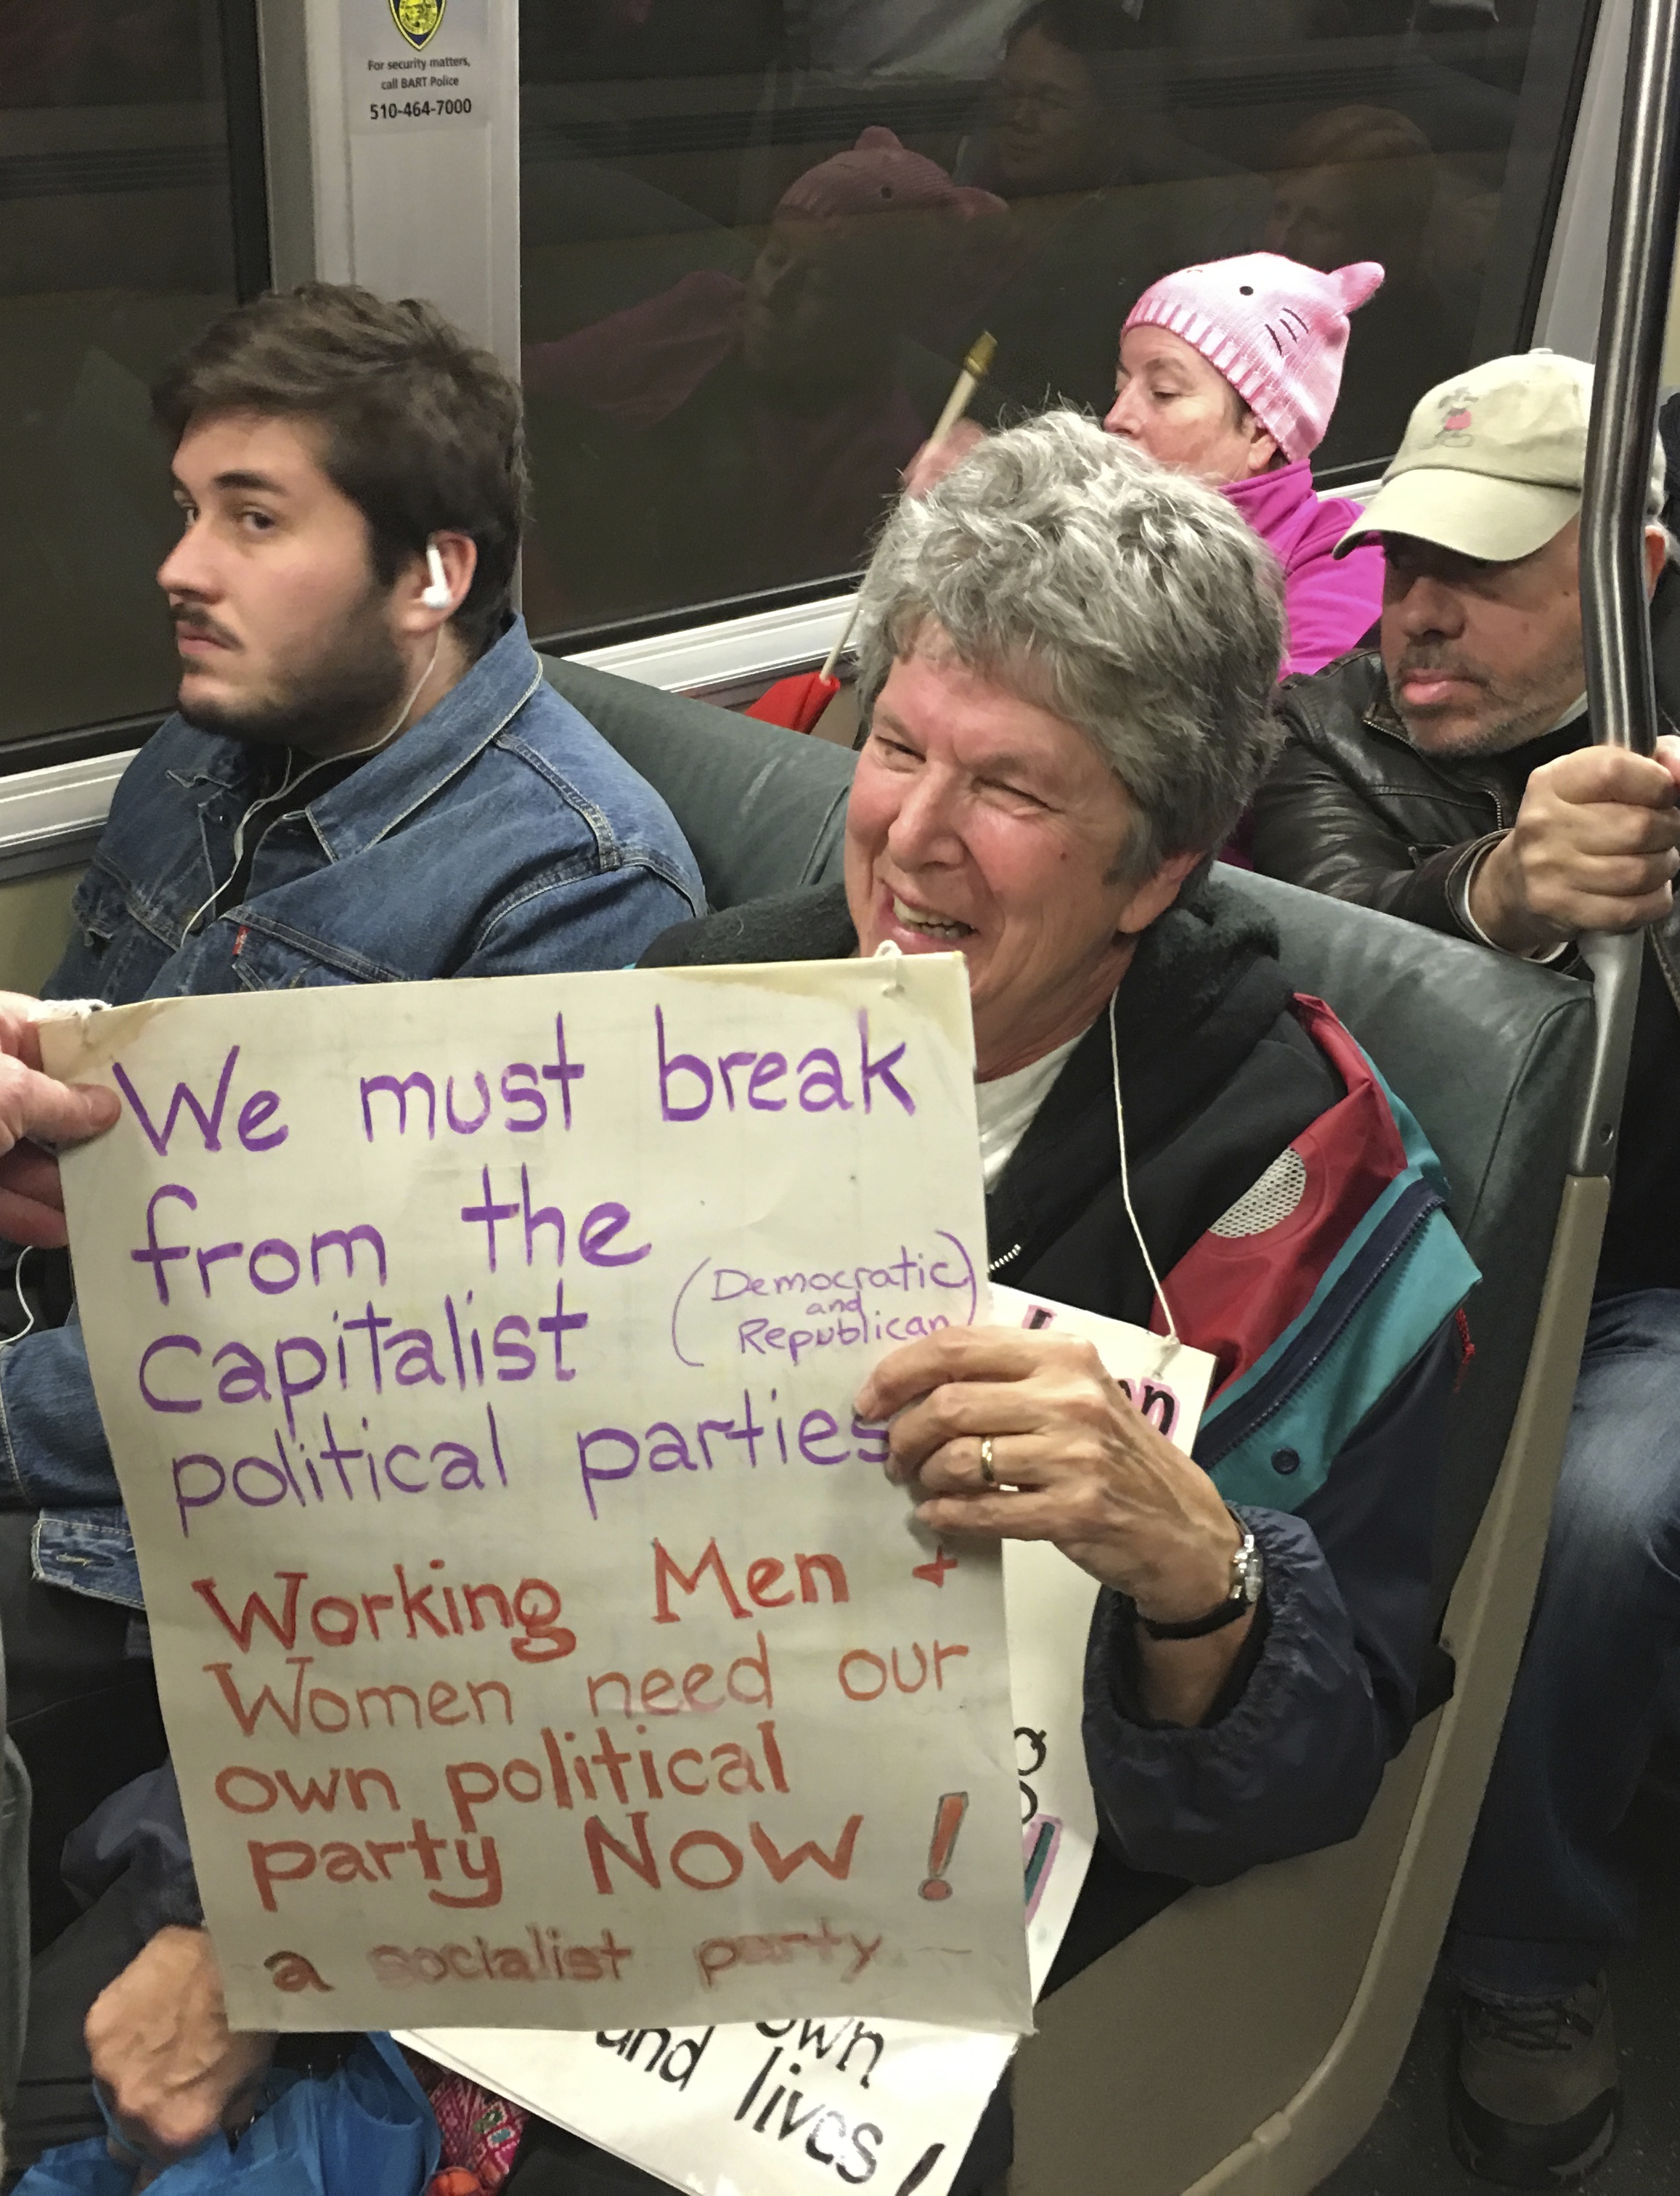 For security matters,
call BART Police
510-464-7000
We must break
from the
capitalist (Democratic
and
Republican)
political parties
Working Men +
Women need our
own political
party NOW!
a socialist party
own
and lives!